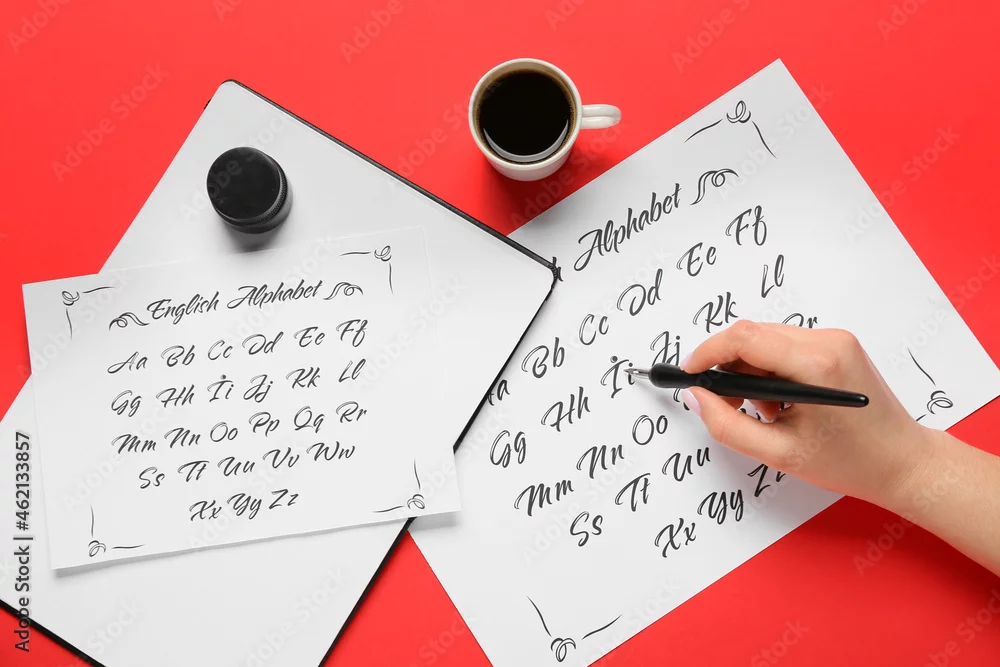 English Alphabet
Aa Bb Cc Dd Ee Ff
Gg Hh İi Jj Kk Ll
Mm Nn Oo Pp Qq Rr
Ss Tt Uu Vv Ww
Xx Yy Zz
Alphabet
Aa Bb Cc Dd Ee Ff
Gg Hh İi Jj Kk Ll
Mm Nn Oo
Ss Tt Uu
Xx Yy Zz
Adobe Stock | #462133857